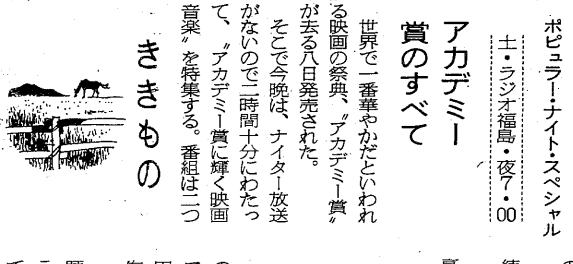 ポピュラー・ナイト・スペシャル
土・ラジオ福島・夜7・00
アカデミー
賞のすべて
世界で一番華やかだといわれ
る映画の祭典、〝アカデミー賞〟
が去る八日発売された。
そこで今晩は、ナイター放送
がないので二時間十分にわたっ
て、〝アカデミー賞に輝く映画
音楽〟を特集する。番組は二つ
ききもの